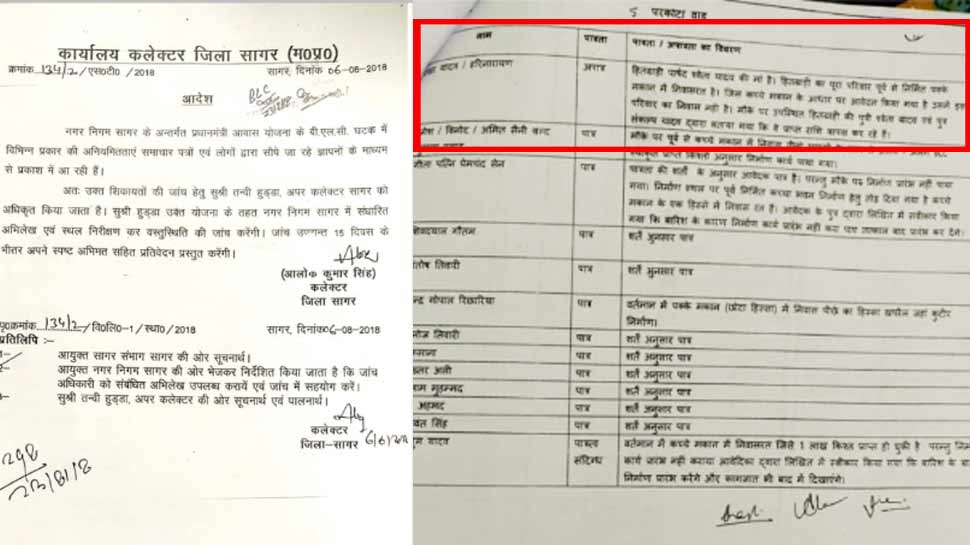 कार्यालय कलेक्टर जिला सागर (म0प्र0)
क्रमांक 134/2/एस0टी0 /2018
सागर, दिनांक 06-08-2018
आदेश
BLC
नगर निगम सागर के अन्तर्गत प्रधानमंत्री आवास योजना के बी.एल.सी. घटक में
विभिन्न प्रकार की अनियमितताएं समाचार पत्रों एवं लोगों द्वारा सौपे जा रहे ज्ञापनों के माध्यम
से प्रकाश में आ रही हैं।
अतः उक्त शिकायतों की जांच हेतु सुश्री तन्वी हुड्डा, अपर कलेक्टर सागर को
अधिकृत किया जाता है। सुश्री हुड्डा उक्त योजना के तहत नगर निगम सागर में संधारित
अभिलेख एवं स्थल निरीक्षण कर वस्तुस्थिति की जांच करेंगी। जांच उपरान्त 15 दिवस के
भीतर अपने स्पष्ट अभिमत सहित प्रतिवेदन प्रस्तुत करेंगी।
(आलोक कुमार सिंह)
कलेक्टर
जिला सागर
पृ0क्रमांक 134/2/वि0लि0-1/स्था0/2018
सागर, दिनांक 06-08-2018
प्रतिलिपि :-
आयुक्त सागर संभाग सागर की ओर सूचनार्थ।
आयुक्त नगर निगम सागर की ओर भेजकर निर्देशित किया जाता है कि जांच
अधिकारी को संबंधित अभिलेख उपलब्ध करायें एवं जांच में सहयोग करें।
सुश्री तन्वी हुड्डा, अपर कलेक्टर की ओर सूचनार्थ एवं पालनार्थ।
कलेक्टर
जिला-सागर
298
23/8/18
5 परकोटा वार्ड
नाम पात्रता पात्रता / अपात्रता का विवरण
यादव / हरिनारायण अपात्र हितग्राही पार्षद श्वेता यादव की मां है। हितग्राही का पूरा परिवार पूर्व से निर्मित पक्के
मकान में निवासरत है। जिस कच्चे मकान के आधार पर आवेदन किया गया है उसमें इस
परिवार का निवास नहीं है। मौके पर उपस्थित हितग्राही की पुत्री श्वेता यादव एवं पुत्र
संकल्प यादव द्वारा बताया गया कि वे प्राप्त राशि वापस कर रहे हैं।
/ विनोद / अमित सैनी पात्र मौके पर पूर्व से कच्चे मकान में निवास
प्राप्त किश्त अनुसार निर्माण कार्य पाया गया।
पत्नि प्रेमचंद सेन पात्र पात्रता की शर्तों के अनुसार आवेदक पात्र है। परन्तु मौके पर निर्माण प्रारंभ नहीं पाया
गया। निर्माण स्थल पर पूर्व निर्मित कच्चा भवन निर्माण हेतु तोड़ दिया गया है कच्चे
मकान के एक हिस्से में निवास रत है। आवेदक के पुत्र द्वारा लिखित में स्वीकार किया
गया कि बारिश के कारण निर्माण कार्य प्रारंभ नहीं करा बाद प्रारंभ कर देंगे।
शिवदयाल गौतम पात्र शर्तें अनुसार पात्र
तिवारी पात्र शर्तें अनुसार पात्र
गोपाल रिछारिया पात्र वर्तमान में पक्के मकान (छोटा हिस्सा) में निवास पीछे का हिस्सा खपरैल जहां कुटीर
निर्माण।
तिवारी पात्र शर्तें अनुसार पात्र
पात्र शर्तें अनुसार पात्र
अली पात्र शर्तें अनुसार पात्र
मुहम्मद पात्र शर्तें अनुसार पात्र
अहमद पात्र शर्तें अनुसार पात्र
सिंह पात्र शर्तें अनुसार पात्र
यादव पात्रता वर्तमान में कच्चे मकान में निवासरत जिसे 1 लाख किश्त प्राप्त हो चुकी है परन्तु
संदिग्ध कार्य प्रारंभ नहीं कराया आवेदिका द्वारा लिखित में स्वीकार किया गया कि बारिश के बाद
निर्माण प्रारंभ करेंगे और कागजात भी बाद में दिखाएंगे।